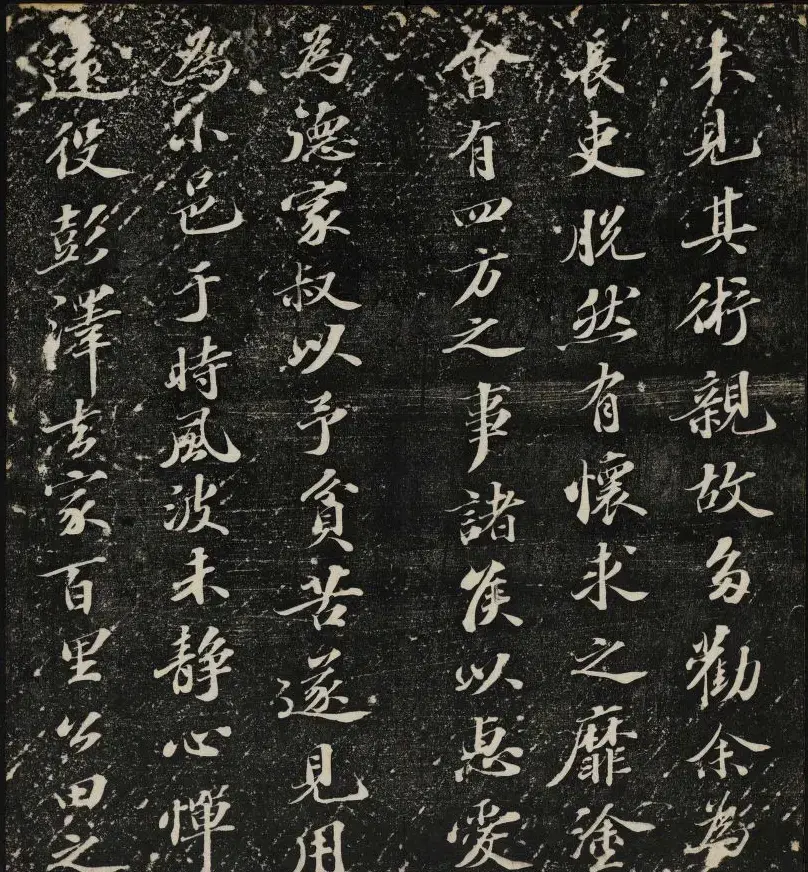 未見其術親故多勸余為
長吏脱然有懷求之靡塗
會有四方之事諸侯以惠愛
為德家叔以予貧苦遂見用
為小邑于時風波未静心憚
遠役彭澤去家百里公田之